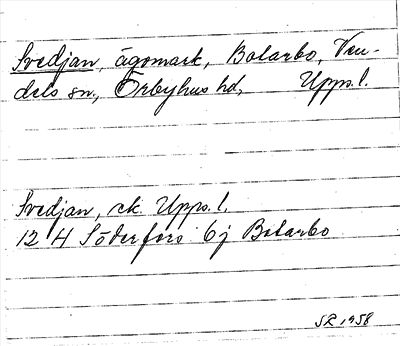 Svedjan, ägomark, Botarbo, Ven-
dels sn., Örbyhus hd, Upps. l.
Svedjan, ek. Upps. l.
12 H Söderfors 6j Botarbo
SZ 1958